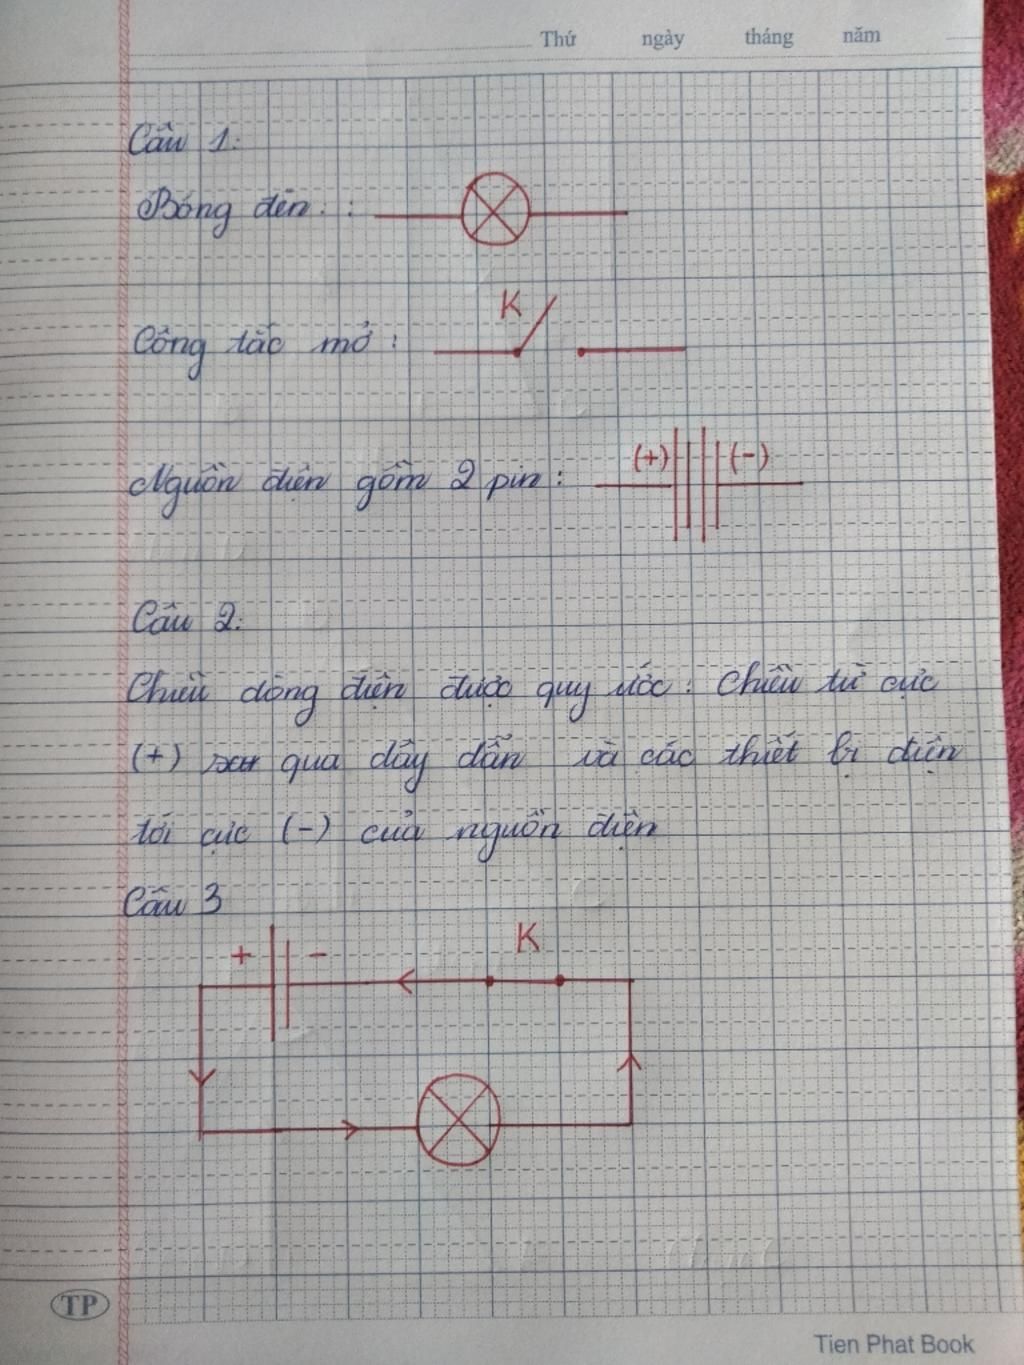 Thứ ngày tháng năm
Câu 1:
Bóng đèn :
K
Công tắc mở :
(+) (-)
Nguồn điện gồm 2 pin :
Câu 2:
Chiều dòng điện được quy ước : Chiều từ cực
(+) qua dây dẫn và các thiết bị điện
tới cực (-) của nguồn điện
Câu 3
+ - K
TP
Tien Phat Book